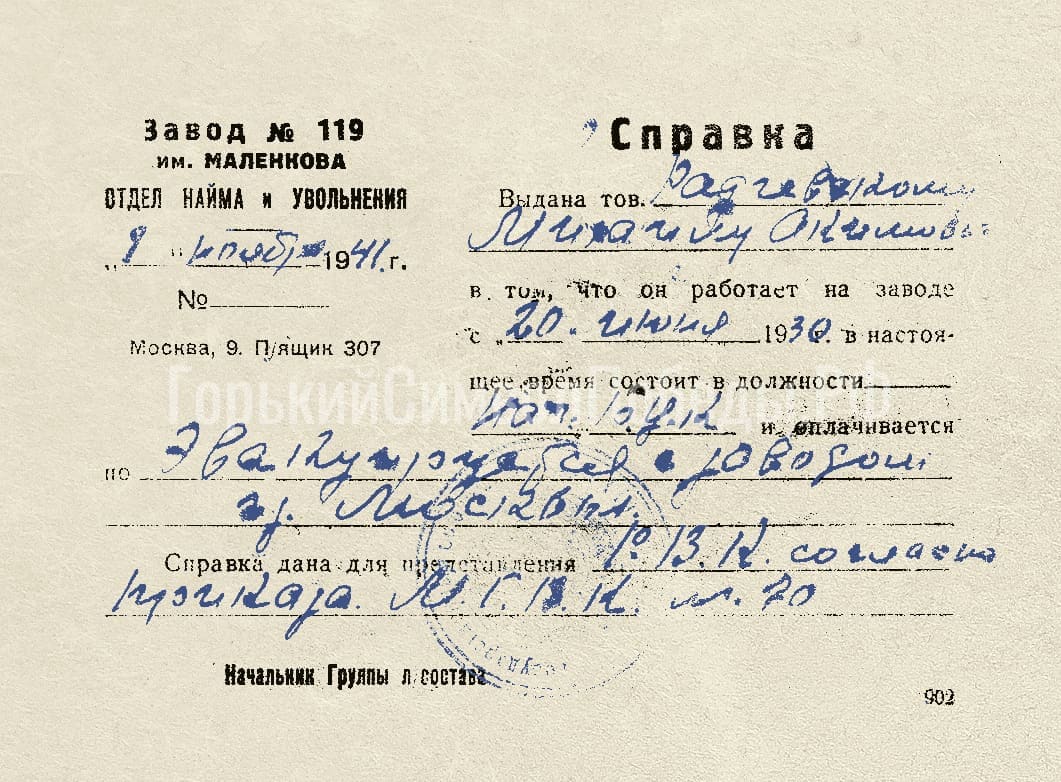 Завод № 119
им. МАЛЕНКОВА
ОТДЕЛ НАЙМА и УВОЛЬНЕНИЯ
„8" ноября 1941 г.
№
Москва, 9. П/ящик 307
Справка
Выдана тов.
Михаилу Акимовичу
в том, что он работает на заводе
с „20" июня 1930 г. в настоя-
щее время состоит в должности
Нач. и оплачивается
по Эвакуируется с заводом
из Москвы.
Справка дана для представления Р.В.К. согласно
приказа М.Г.В.К. 70
Начальник Группы л/состава
902
ГорькийСимволПобеды.РФ